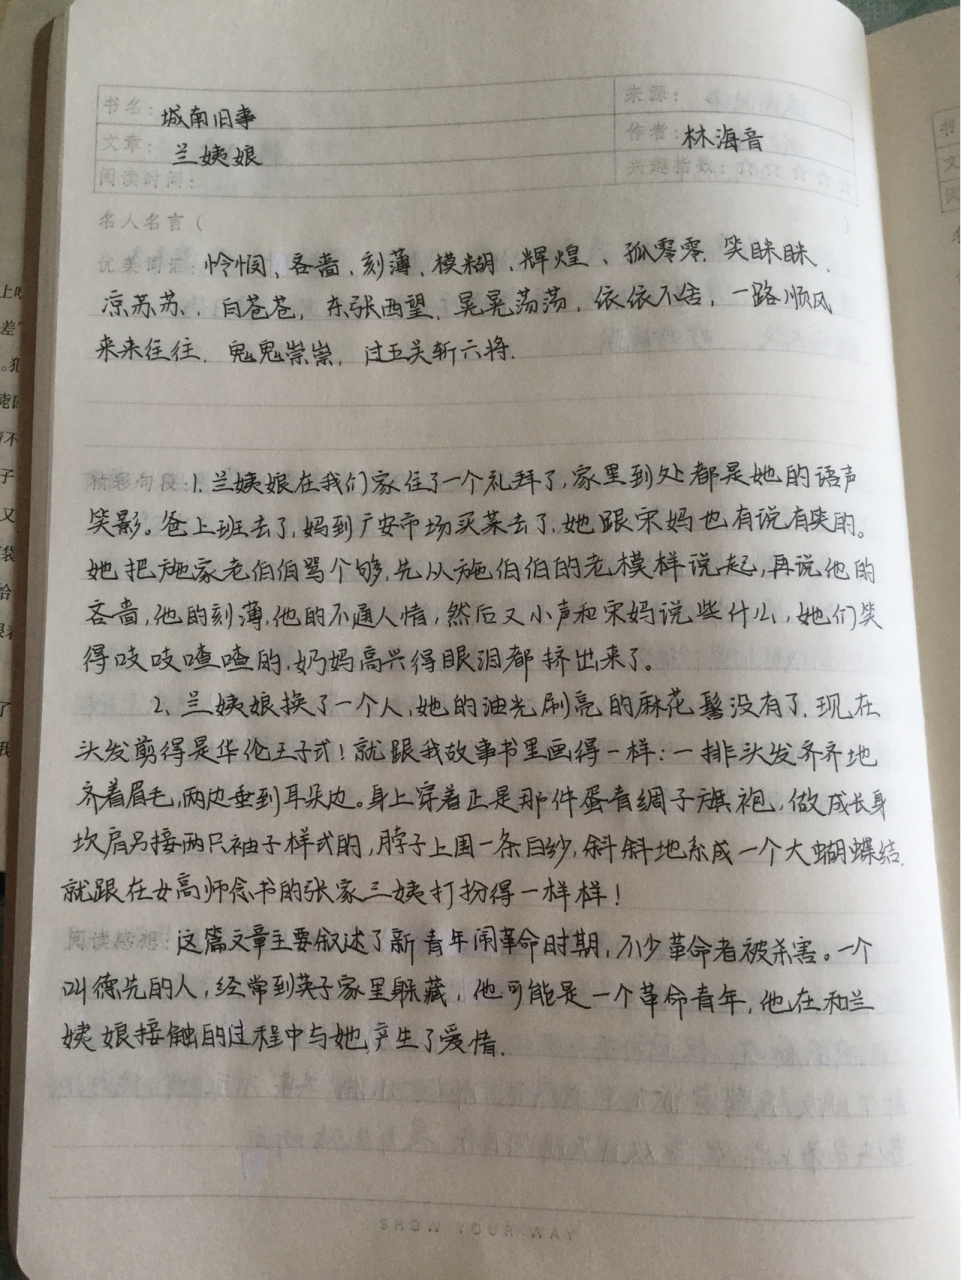 书名：城南旧事 来源：
文章：兰姨娘 作者：林海音
阅读时间： 兴趣指数：☆☆☆☆☆
名人名言（ ）
优美词汇：怜悯、吝啬、刻薄、模糊、辉煌、孤零零、笑眯眯、
凉苏苏、白苍苍，东张西望，晃晃荡荡，依依不舍，一路顺风
来来往往、鬼鬼祟祟，过五关斩六将.
精彩句段：1、兰姨娘在我们家住了一个礼拜了，家里到处都是她的语声
笑影。爸上班去了，妈到广安市场买菜去了，她跟宋妈也有说有笑的。
她把施家老伯伯骂个够，先从施伯伯的老模样说起，再说他的
吝啬，他的刻薄，他的不通人情，然后又小声和宋妈说些什么，她们笑
得吱吱喳喳的，奶妈高兴得眼泪都挤出来了。
2、兰姨娘换了一个人，她的油光刷亮的麻花髻没有了，现在
头发剪得是华伦王子式！就跟我故事书里画得一样：一排头发齐齐地
齐着眉毛，两边垂到耳朵边。身上穿着正是那件蛋青绸子旗袍，做成长身
坎肩另接两只袖子样式的，脖子上围一条白纱，斜斜地系成一个大蝴蝶结，
就跟在女高师念书的张家三姨打扮得一样样！
阅读感想：这篇文章主要叙述了新青年闹革命时期，不少革命者被杀害。一个
叫德先的人，经常到英子家里躲藏，他可能是一个革命青年，他在和兰
姨娘接触的过程中与她产生了爱情.
SHOW YOUR WAY